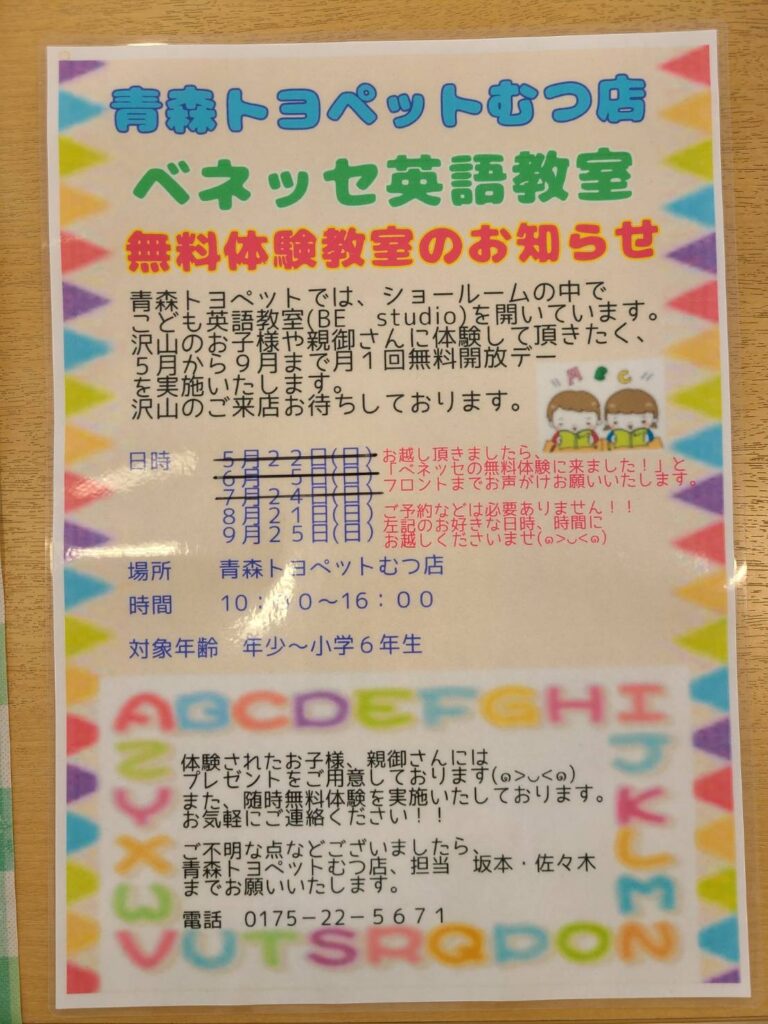 青森トヨペットむつ店
ベネッセ英語教室
無料体験教室のお知らせ
青森トヨペットでは、ショールームの中で
こども英語教室(BE studio)を開いています。
沢山のお子様や親御さんに体験して頂きたく、
５月から９月まで月１回無料開放デー
を実施いたします。
沢山のご来店お待ちしております。
A B C
日時
５月２２日(日)
６月 日(日)
７月２４日(日)
８月２１日(日)
９月２５日(日)
お越し頂きましたら、
「ベネッセの無料体験に来ました！」と
フロントまでお声がけお願いいたします。
ご予約などは必要ありません！！
左記のお好きな日時、時間に
お越しくださいませ(๑>◡<๑)
場所 青森トヨペットむつ店
時間 10：00～16：00
対象年齢 年少～小学６年生
ABCDEFGHI
体験されたお子様、親御さんには
プレゼントをご用意しております(๑>◡<๑)
また、随時無料体験を実施いたしております。
お気軽にご連絡ください！！
ご不明な点などございましたら、
青森トヨペットむつ店、担当 坂本・佐々木
までお願いいたします。
電話 0175－22－5671
J
K
L
M
N
O
P
Q
R
S
T
U
V
W
X
Y
Z